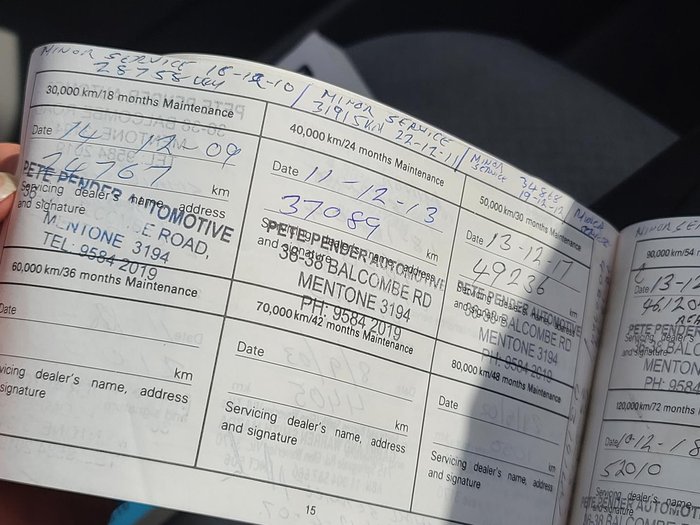 MINOR SERVICE 18-12-10
28758 km
MINOR SERVICE
31915 km 22-12-11
MINOR SERVICE 34868
19-12-12
30,000 km/18 months Maintenance
Date 14 12 09
24767 km
Servicing dealer's name, address
and signature
PETE PENDER AUTOMOTIVE
MENTONE 3194
TEL: 9584 2019
40,000 km/24 months Maintenance
Date 11-12-13
37089 km
Servicing dealer's name, address
and signature
PETE PENDER AUTOMOTIVE
36-38 BALCOMBE RD
MENTONE 3194
PH: 9584 2019
50,000 km/30 months Maintenance
Date 13-12-17
49236 km
PETE PENDER AUTOMOTIVE
36-38 BALCOMBE RD
MENTONE 3194
PH: 9584 2019
60,000 km/36 months Maintenance
Date
km
vicing dealer's name, address
signature
70,000 km/42 months Maintenance
Date
km
Servicing dealer's name, address
and signature
80,000 km/48 months Maintenance
Date
km
Servicing dealer's name, address
and signature
15
90,000 km/54
Date 13-12
MENTON
PH: 9584
120,000 km/72 months
Date 10-12-18
52010
PETE PENDER AUTOMOT
36-38 BALCOMBE